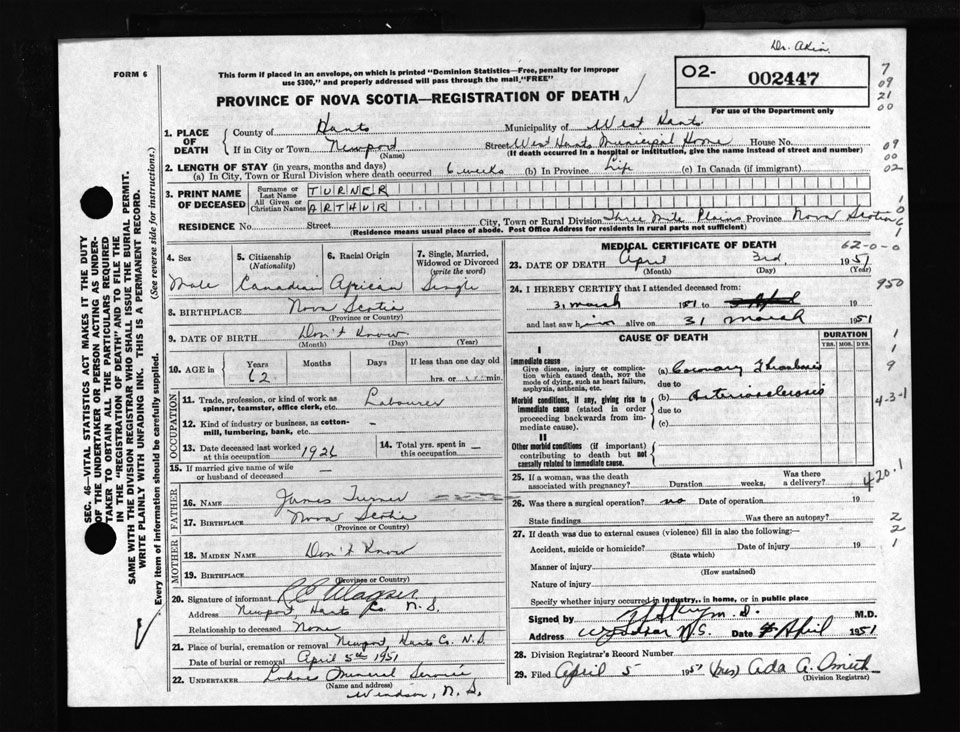 Dr. Akin
FORM 6
This form if placed in an envelope, on which is printed "Dominion Statistics—Free, penalty for improper
use $300," and properly addressed will pass through the mail "FREE"
O2- 002447
For use of the Department only
7
09
21
00
PROVINCE OF NOVA SCOTIA—REGISTRATION OF DEATH
1. PLACE OF DEATH
County of Hants Municipality of West Hants
If in City or Town Newport Street West Hants Municipal Home House No.
(Name) (If death occurred in a hospital or institution, give the name instead of street and number)
09
00
02
2. LENGTH OF STAY (in years, months and days)
(a) In City, Town or Rural Division where death occurred 6 weeks (b) In Province Life (c) In Canada (if immigrant)
3. PRINT NAME OF DECEASED
Surname or Last Name TURNER
All Given or Christian Names ARTHUR
RESIDENCE No. Street City, Town or Rural Division Three Mile Plains Province Nova Scotia
(Residence means usual place of abode. Post Office Address for residents in rural parts not sufficient)
4. Sex
Male
5. Citizenship (Nationality)
Canadian
6. Racial Origin
African
7. Single, Married, Widowed or Divorced (write the word)
Single
8. BIRTHPLACE Nova Scotia
(Province or Country)
9. DATE OF BIRTH Don't Know
(Month) (Day) (Year)
10. AGE in Years Months Days If less than one day old
62 hrs. or min.
OCCUPATION
11. Trade, profession, or kind of work as spinner, teamster, office clerk, etc. Labourer
12. Kind of industry or business, as cotton-mill, lumbering, bank, etc. —
13. Date deceased last worked at this occupation 1926
14. Total yrs. spent in this occupation —
15. If married give name of wife or husband of deceased —
FATHER
16. NAME James Turner
17. BIRTHPLACE Nova Scotia
(Province or Country)
MOTHER
18. MAIDEN NAME Don't Know
19. BIRTHPLACE
(Province or Country)
20. Signature of informant
Address Newport Hants Co. N.S.
Relationship to deceased None
21. Place of burial, cremation or removal Newport Hants Co. N.S.
Date of burial or removal April 5th 1951
22. UNDERTAKER Funeral Service
(Name and address)
Windsor, N.S.
MEDICAL CERTIFICATE OF DEATH
62-0-0
23. DATE OF DEATH April 3rd, 1951
(Month) (Day) (Year)
24. I HEREBY CERTIFY that I attended deceased from: 950
31 March 1951 to 3 April 19
and last saw him alive on 31 March 1951
CAUSE OF DEATH
DURATION
YRS. MOS. DYS.
I
Immediate cause
Give disease, injury or complication which caused death, NOT the mode of dying, such as heart failure, asphyxia, asthenia, etc.
(a) Coronary Thrombosis
due to
Morbid conditions, if any, giving rise to immediate cause (stated in order proceeding backwards from immediate cause).
(b) Arteriosclerosis
due to
(c)
4-3-1
II
Other morbid conditions (if important) contributing to death but not causally related to immediate cause.
25. If a woman, was the death associated with pregnancy? Duration weeks, Was there a delivery?
420.1
26. Was there a surgical operation? no Date of operation 19
State findings Was there an autopsy?
27. If death was due to external causes (violence) fill in also the following:—
Accident, suicide or homicide? Date of injury 19
(State which)
Manner of injury
(How sustained)
Nature of injury
Specify whether injury occurred in industry, in home, or in public place
Signed by M.D.
Address Windsor N.S. Date 4 April 1951
28. Division Registrar's Record Number
29. Filed April 5 1951 (Mrs) Ada A. Smith
(Division Registrar)
SEC. 46—VITAL STATISTICS ACT MAKES IT THE DUTY
OF THE UNDERTAKER OR PERSON ACTING AS UNDERTAKER TO OBTAIN ALL THE PARTICULARS REQUIRED
IN THE "REGISTRATION OF DEATH" AND TO FILE THE
SAME WITH THE DIVISION REGISTRAR WHO SHALL ISSUE THE BURIAL PERMIT.
WRITE PLAINLY WITH UNFADING INK. THIS IS A PERMANENT RECORD.
Every item of information should be carefully supplied. (See reverse side for instructions.)